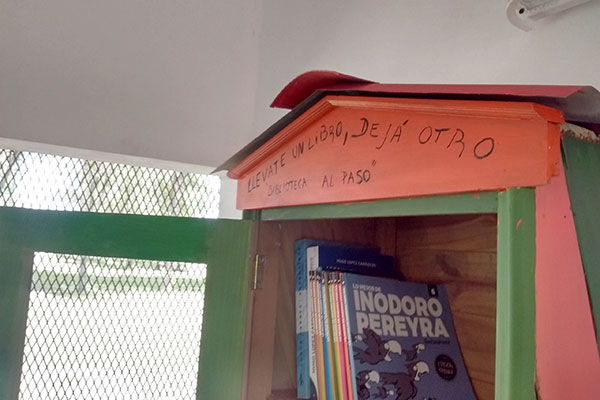 LLEVATE UN LIBRO, DEJÁ OTRO
"BIBLIOTECA AL PASO"
LO MEJOR DE
INODORO
PEREYRA
6